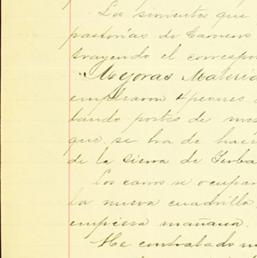 Los sementos que
pastorias de Carneros
trayendo el correspo
"Mejoras Materia
emplearon 4 peones
tando postes de mes
que se ha de hacer
de la Sierra de
Los carros se ocupan
la nueva cuadrilla
empieza mañana.
He contratado